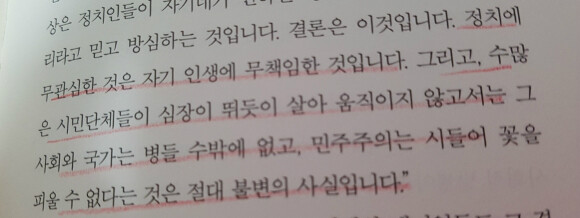 상은 정치인들이 자기네가
리라고 믿고 방심하는 것입니다. 결론은 이것입니다. 정치에
무관심한 것은 자기 인생에 무책임한 것입니다. 그리고, 수많
은 시민단체들이 심장이 뛰듯이 살아 움직이지 않고서는 그
사회와 국가는 병들 수밖에 없고, 민주주의는 시들어 꽃을
피울 수 없다는 것은 절대 불변의 사실입니다.”